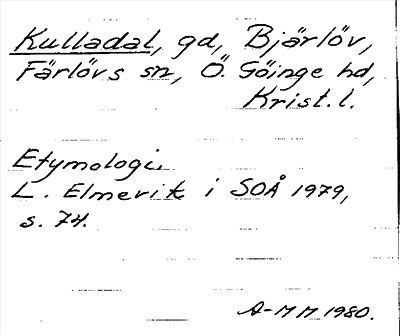 Kulladal, gd, Bjärlöv,
Färlövs sn, Ö. Göinge hd,
Krist. l.
Etymologi
L. Elmevik i SOÅ 1979,
s. 74.
A-MM 1980.